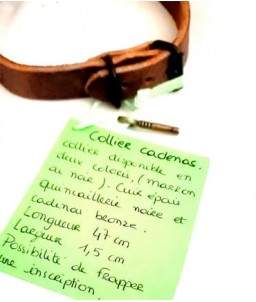 Collier cadenas.
collier disponible en
deux coloris, (marron
ou noir). Cuir épais
quincaillerie noire et
cadenas bronze.
Longueur 47 cm
Largeur 1,5 cm
Possibilité de frapper
une inscription.